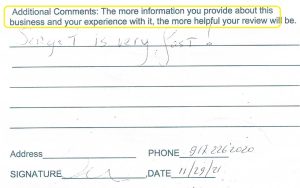 Additional Comments: The more information you provide about this
business and your experience with it, the more helpful your review will be.
is very fast!
Address PHONE 917 226 2020
SIGNATURE DATE 11/29/21